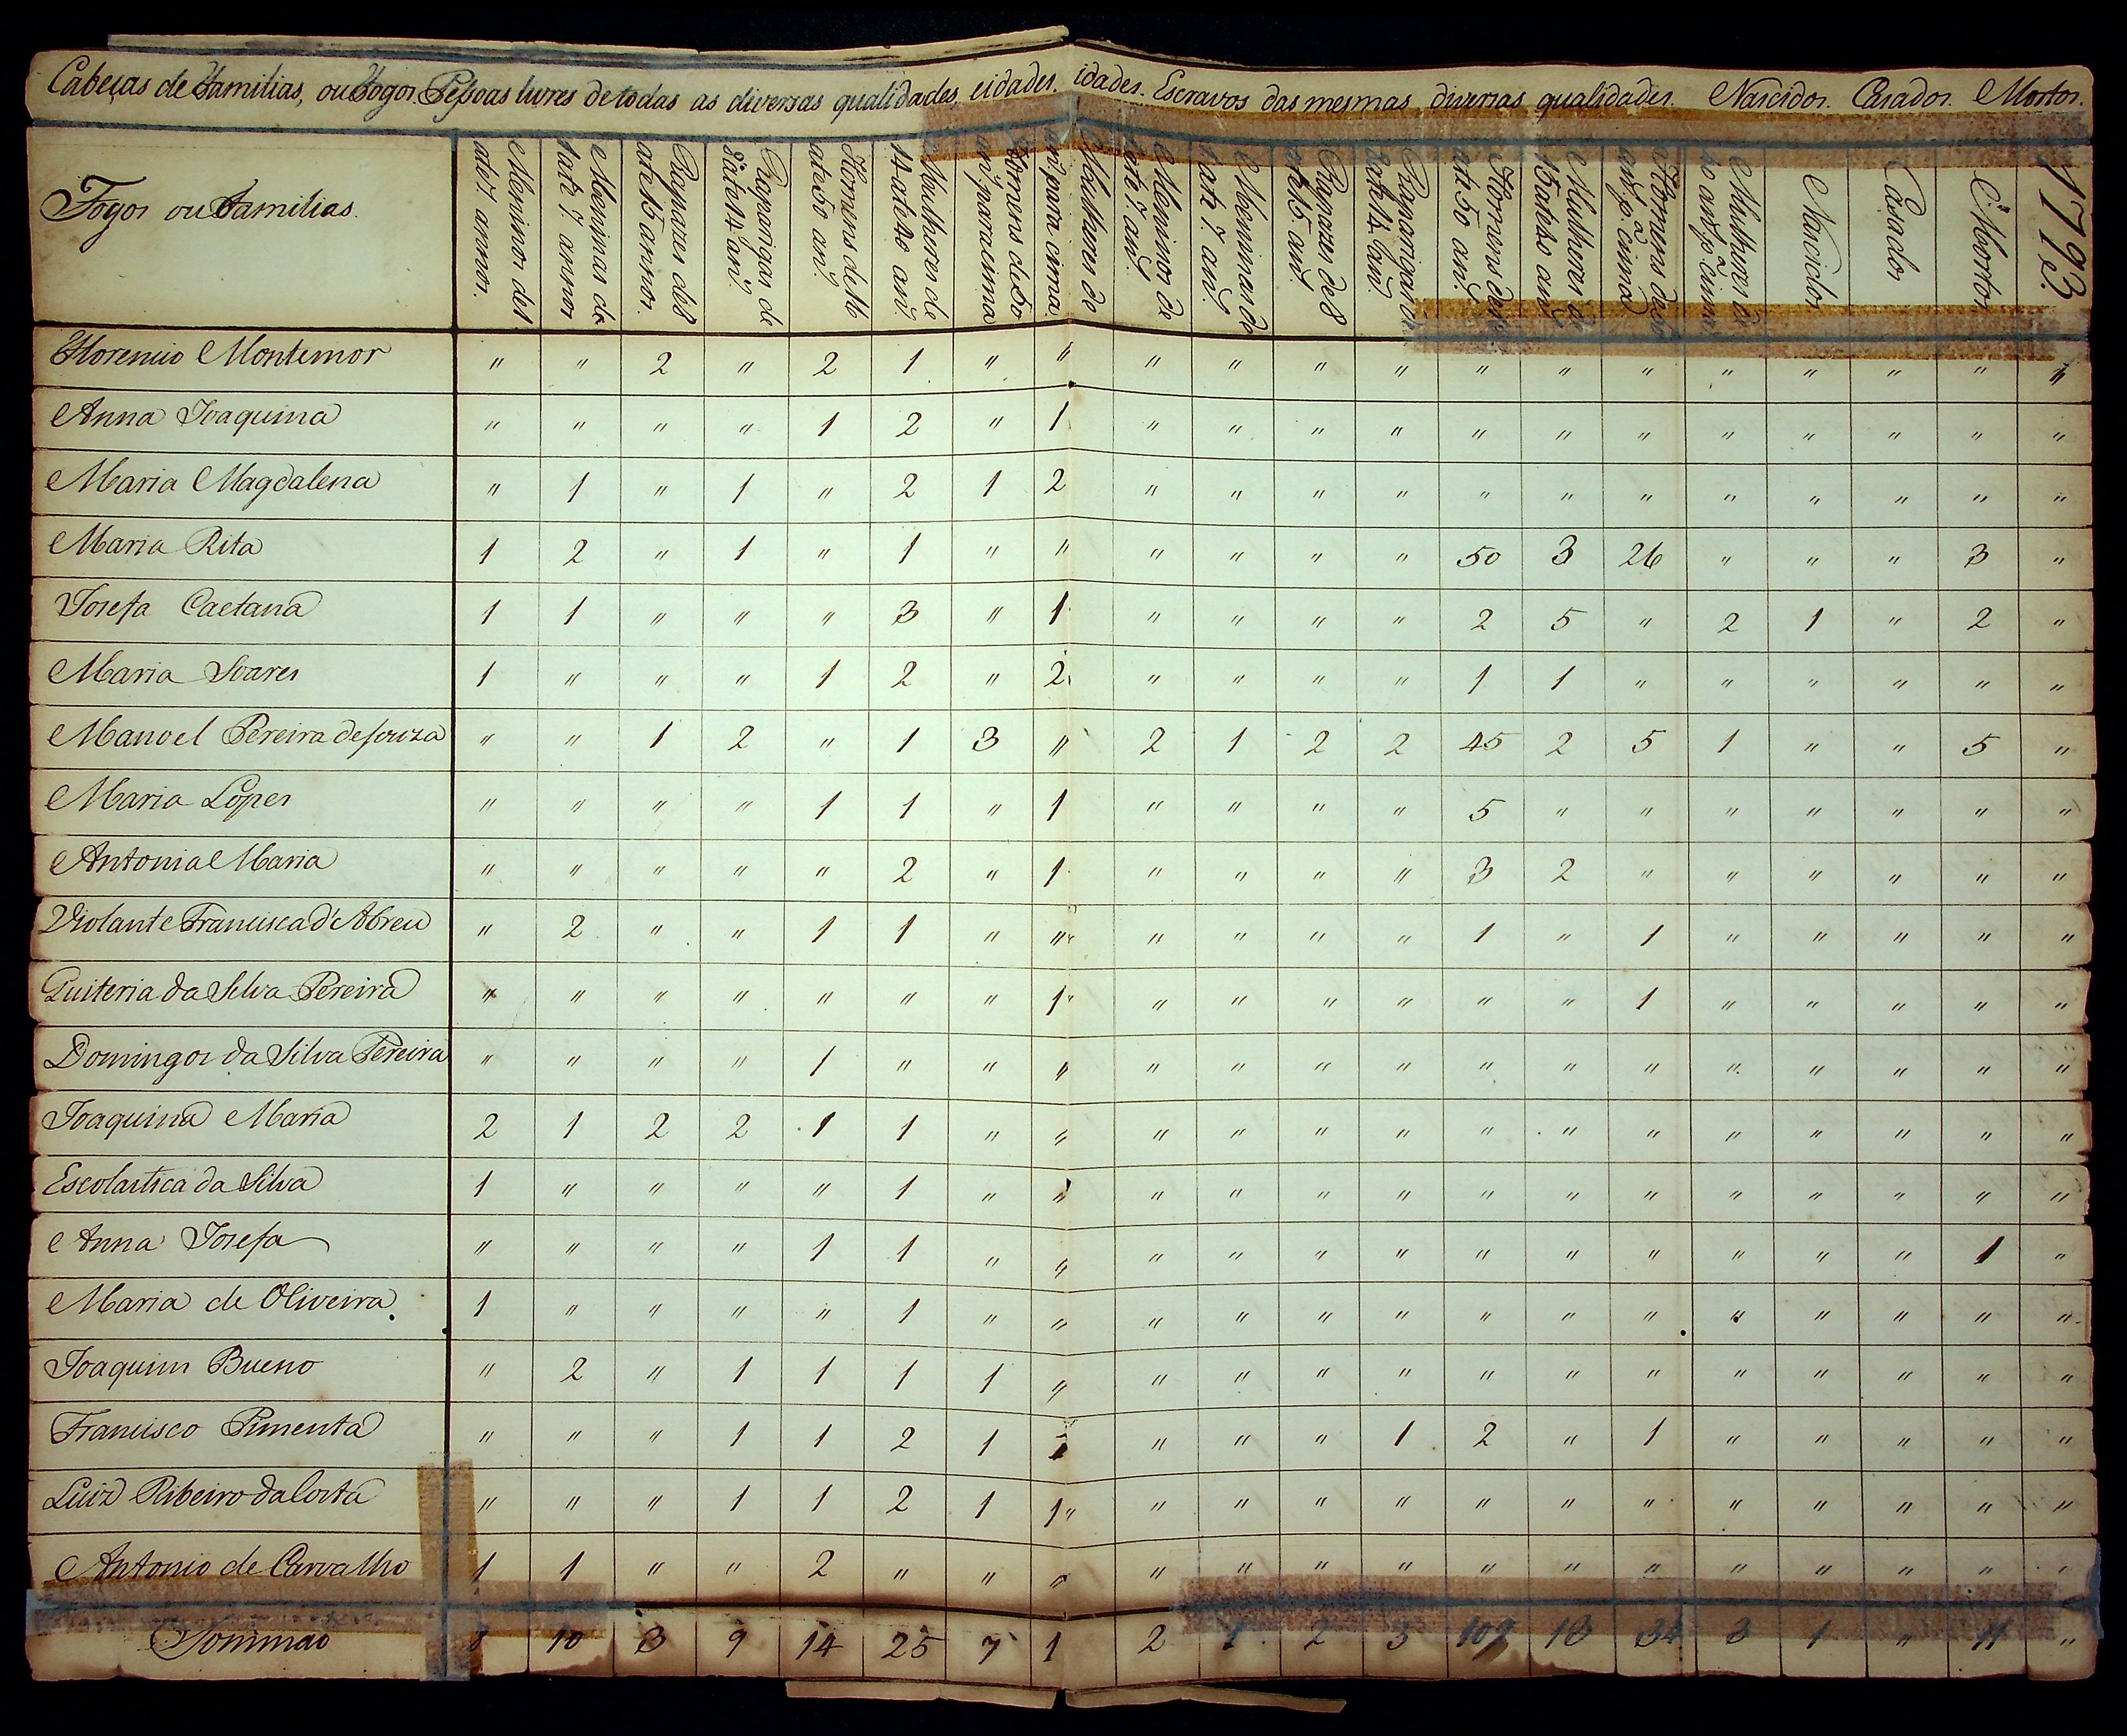 Cabeças de Familias, ou Fogos. Pessoas livres de todas as diversas qualidades, eidades. idades. Escravos das mesmas diversas qualidades. Nascidos. Casados. Mortos.
Fogos ou Familias.
Meninos de 1 ate 7 annos.
Meninas de 1 ate 7 annos
Rapazes de 8 ate 15 annos.
Raparigas de 8 ate 14 an.
Homens de 16 ate 50 an.
Mulheres de 14 ate 40 an.
Homens de 50 an. para cima
Mulheres de an. para cima.
Meninos de ate 7. an.
Meninas de 1 ate 7. an.
Rapazes de 8 ate 15 an.
Raparigas de 8 ate 14 an.
Homens de ate 50 an.
Mulheres de 15 ate an.
Homens de an. p.a cima
Mulheres de an. p.a cima
Nascidos
Casados
Mortos
1793.
Florencio Montemor " " 2 " 2 1 " " " " " " " " " " " " " "
Anna Joaquina " " " " 1 2 " 1 " " " " " " " " " " " "
Maria Magdalena " 1 " 1 " 2 1 2 " " " " " " " " " " " "
Maria Rita 1 2 " 1 " 1 " " " " " " 50 3 26 " " " 3 "
Josefa Caetana 1 1 " " " 3 " 1 " " " " 2 5 " 2 1 " 2 "
Maria Soares 1 " " " 1 2 " 2 " " " " 1 1 " " " " " "
Manoel Pereira de souza " " 1 2 " 1 3 " 2 1 2 2 45 2 5 1 " " 5 "
Maria Lopes " " " " 1 1 " 1 " " " " 5 " " " " " " "
Antonia Maria " " " " " 2 " 1 " " " " 3 2 " " " " " "
Violante Francisca d'Abreu " 2 " " 1 1 " " " " " " 1 " 1 " " " " "
Quiteria da Silva Pereira " " " " " " " 1 " " " " " " 1 " " " " "
Domingos da Silva Pereira " " " " 1 " " " " " " " " " " " " " " "
Joaquina Maria 2 1 2 2 1 1 " " " " " " " " " " " " " "
Escolastica da Silva 1 " " " " 1 " " " " " " " " " " " " " "
Anna Josefa " " " " 1 1 " " " " " " " " " " " " 1 "
Maria de Oliveira 1 " " " " 1 " " " " " " " " " " " " " "
Joaquim Bueno " 2 " 1 1 1 1 " " " " " " " " " " " " "
Francisco Pimenta " " " 1 1 2 1 1 " " " 1 2 " 1 " " " " "
Luiz Ribeiro da Costa " " " 1 1 2 1 1 " " " " " " " " " " " "
Antonio de Carvalho 1 1 " " 2 " " " " " " " " " " " " " " "
Sommão 8 10 3 9 14 25 7 1 2 1 2 3 109 13 34 3 1 " 11 "